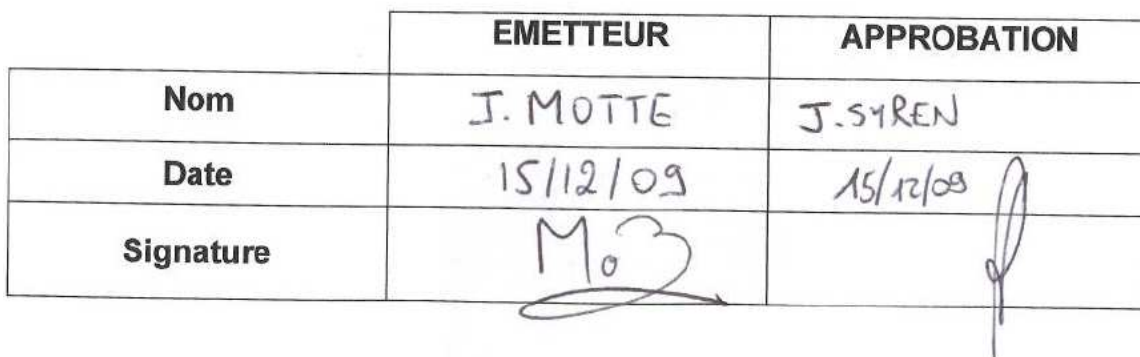 EMETTEUR APPROBATION
Nom J. MOTTE J. SYREN
Date 15/12/09 15/12/09
Signature